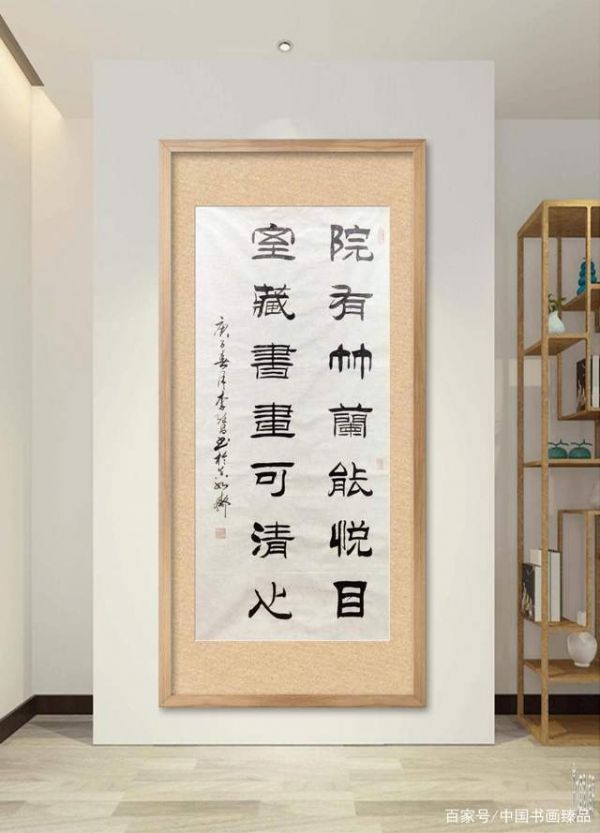 院有竹蘭能悦目
室藏書畫可清心
庚子春月李
書於
百家号/中国书画臻品